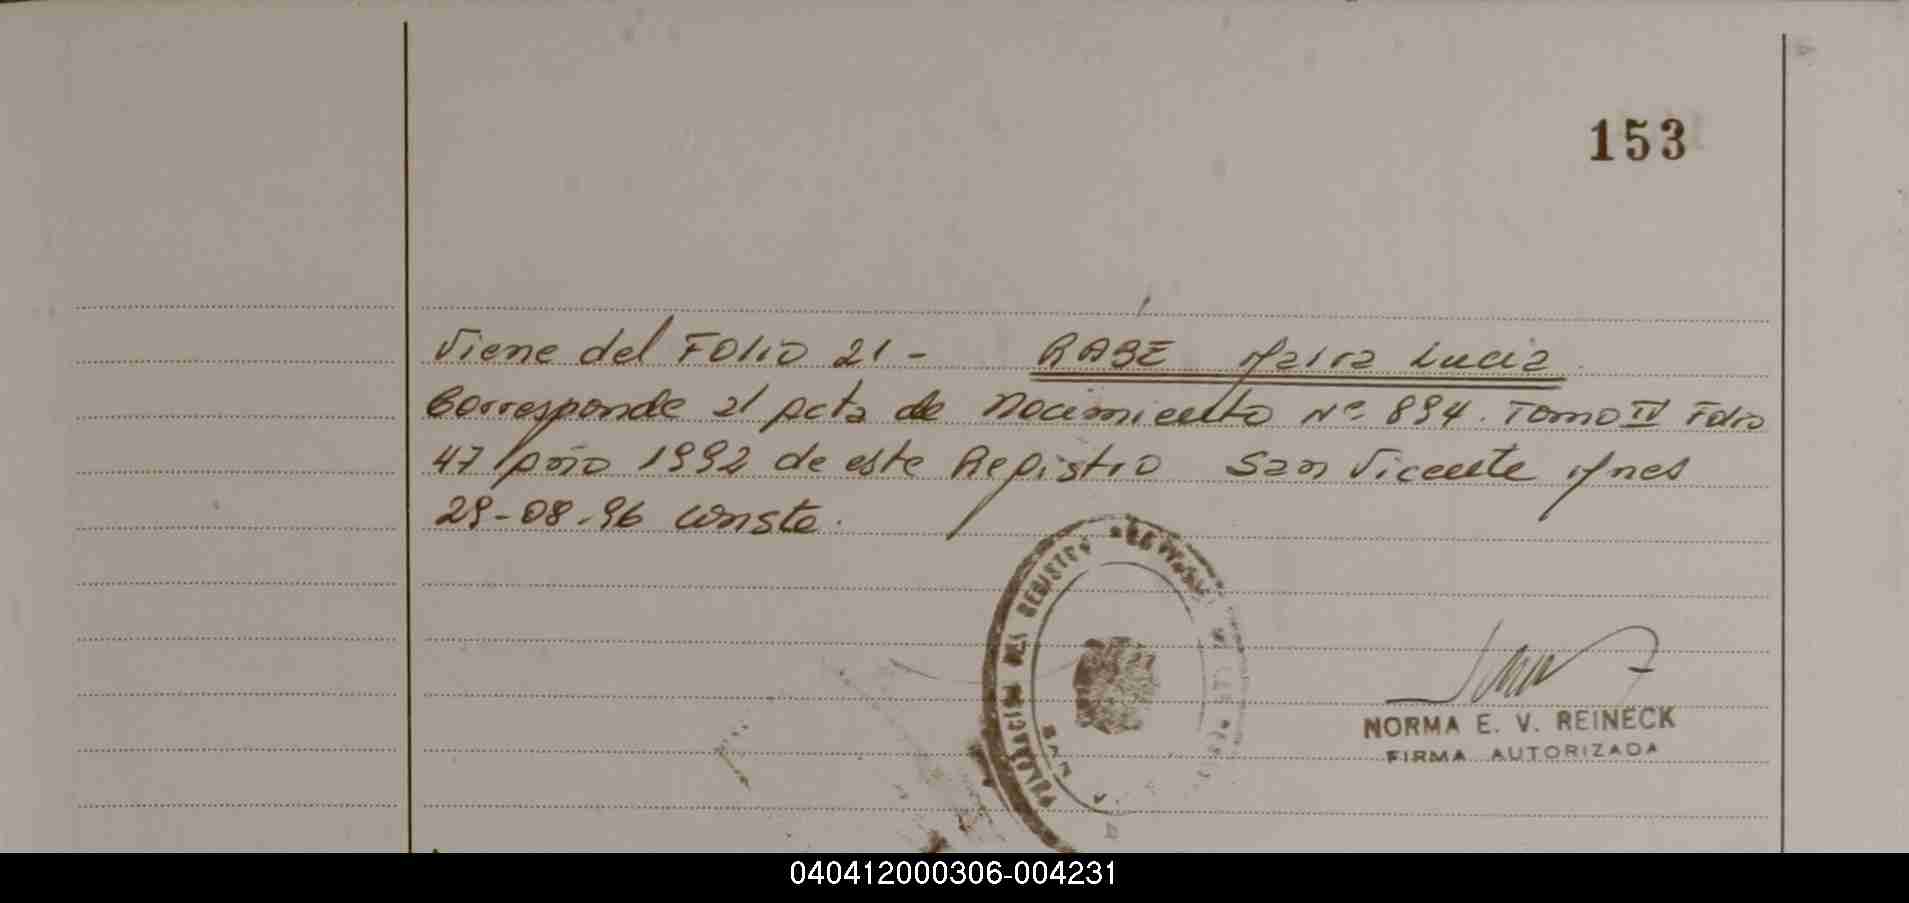 153
Viene del FOLIO 21 - RABE Maira Lucia
Corresponde al Acta de Nacimiento Nº 894. Tomo IV Folio
47 Año 1992 de este Registro San Vicente Mnes
29-08-96 conste.
DEL REGISTRO
SAN V
NORMA E. V. REINECK
FIRMA AUTORIZADA
040412000306-004231